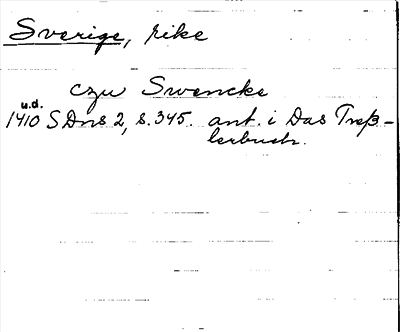 Sverige, rike
czu Swencke
u.d.
1410 SDns 2, s. 345. ant. i Das Treß-
lerbuch.